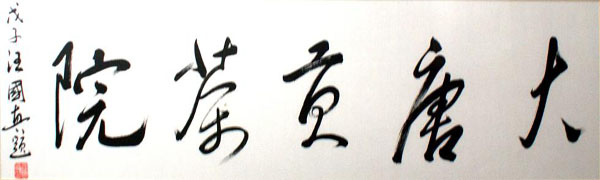 大唐贡茶院
戊子汪國真題